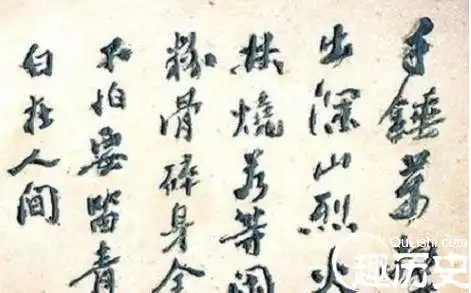 千錘萬
出深山烈火
焚燒若等閒
粉骨碎身全
不怕要留青
白在人间
QuLishi.com
趣历史